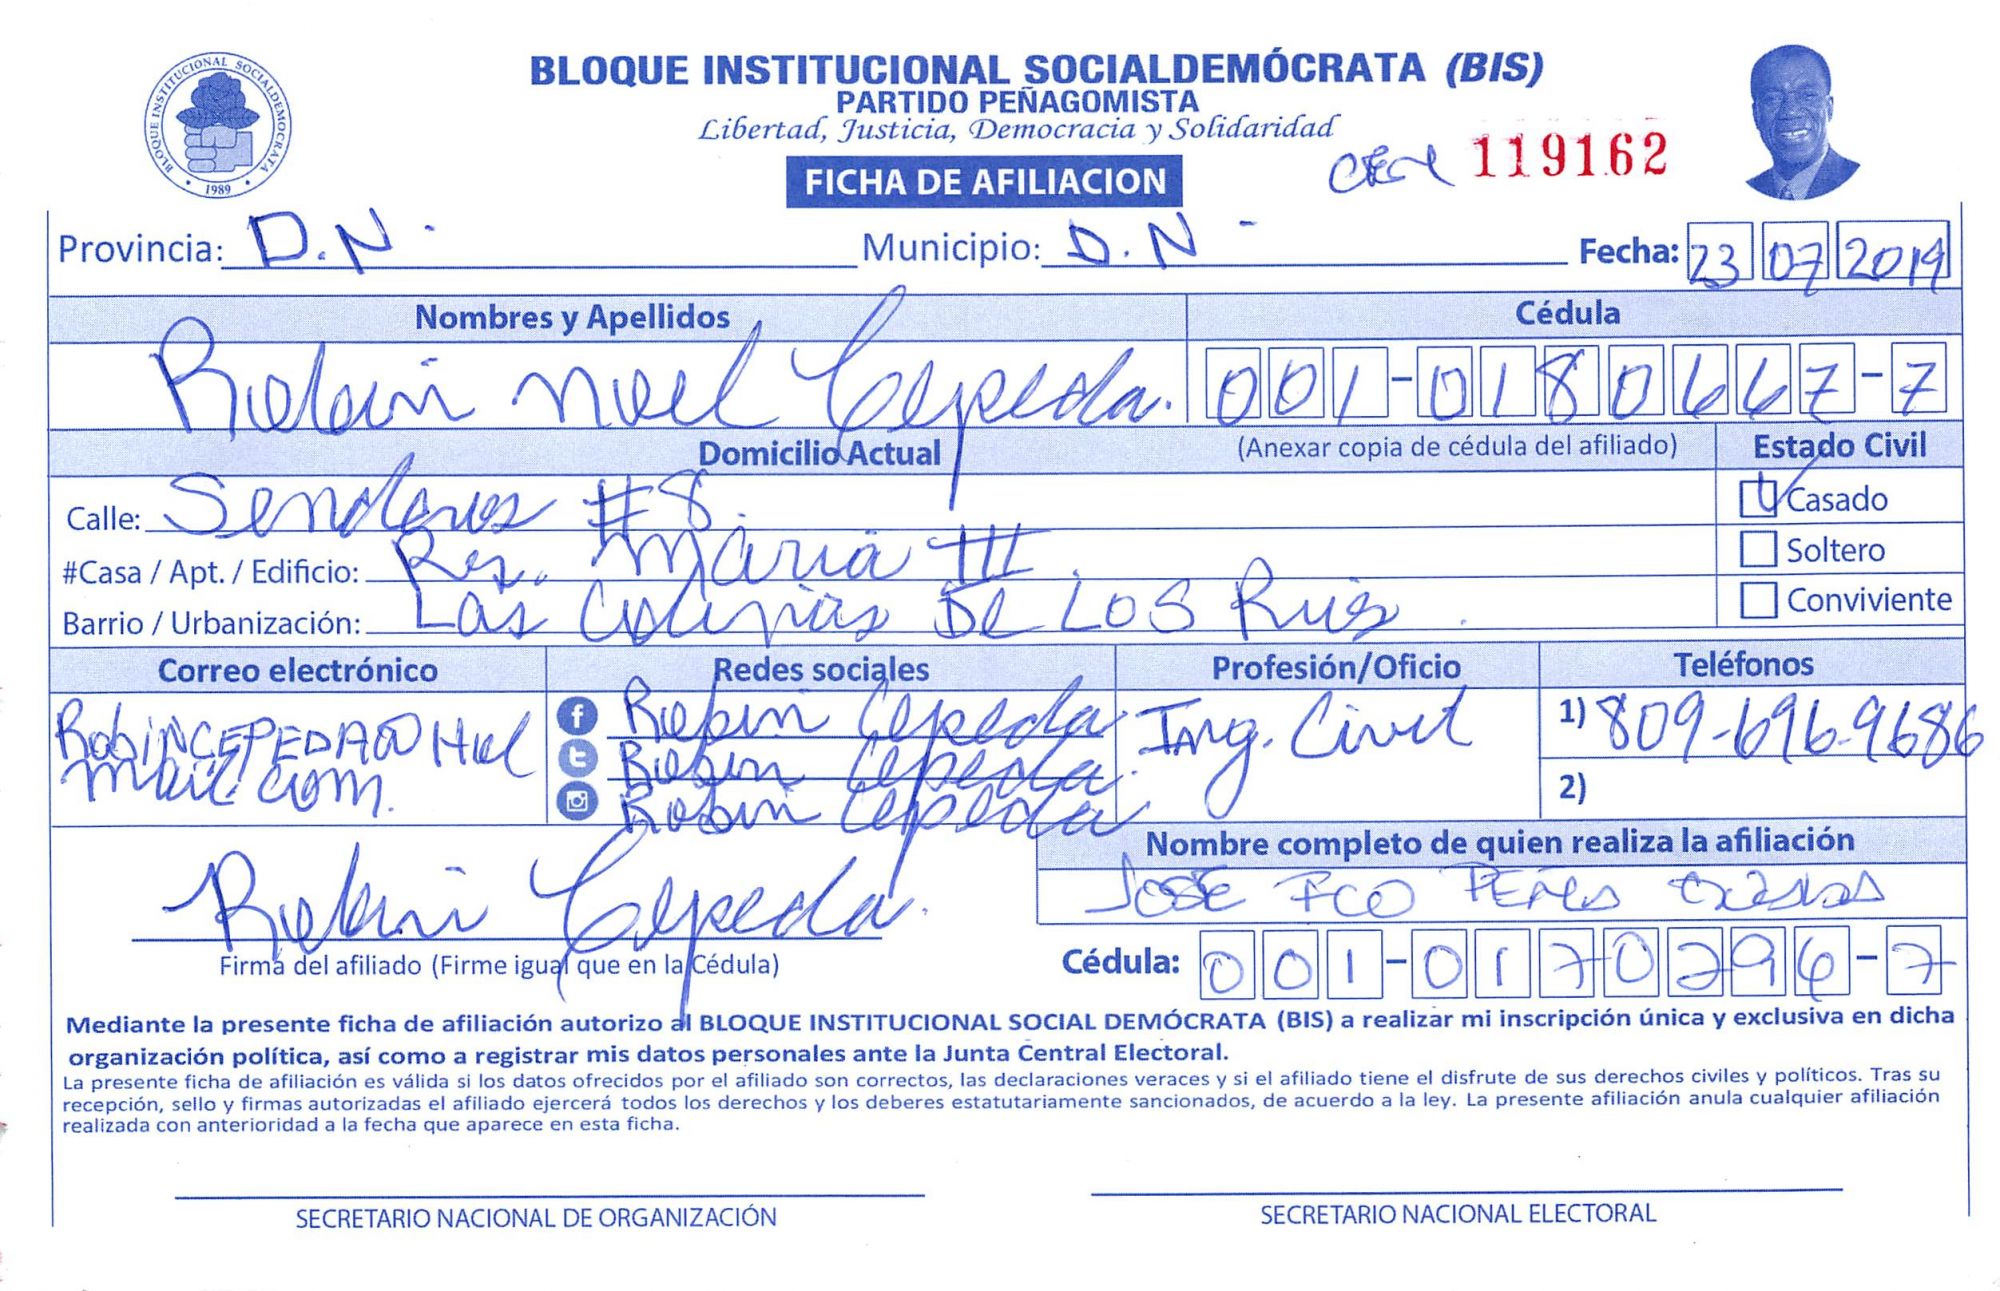 BLOQUE INSTITUCIONAL SOCIALDEMOCRATA
1989
BLOQUE INSTITUCIONAL SOCIALDEMÓCRATA (BIS)
PARTIDO PEÑAGOMISTA
Libertad, Justicia, Democracia y Solidaridad
119162
FICHA DE AFILIACION
Provincia: D.N. Municipio: D.N - Fecha: 23 07 2019
Nombres y Apellidos Cédula
Robin Noel Cepeda. 001-0180667-7
Domicilio Actual (Anexar copia de cédula del afiliado) Estado Civil
Calle: Senderos #8. Casado
#Casa / Apt. / Edificio: Res. Maria III. Soltero
Barrio / Urbanización: Las Colinas De Los Rios. Conviviente
Correo electrónico Redes sociales Profesión/Oficio Teléfonos
RobinCEPEDA@Hot Robin Cepeda Ing. Civil 1) 809-696-9686
mail.com. Robin Cepeda 2)
Robin Cepeda
Nombre completo de quien realiza la afiliación
Robin Cepeda. JOSE FCO
Firma del afiliado (Firme igual que en la Cédula) Cédula: 001-0170296-7
Mediante la presente ficha de afiliación autorizo al BLOQUE INSTITUCIONAL SOCIAL DEMÓCRATA (BIS) a realizar mi inscripción única y exclusiva en dicha
organización política, así como a registrar mis datos personales ante la Junta Central Electoral.
La presente ficha de afiliación es válida si los datos ofrecidos por el afiliado son correctos, las declaraciones veraces y si el afiliado tiene el disfrute de sus derechos civiles y políticos. Tras su
recepción, sello y firmas autorizadas el afiliado ejercerá todos los derechos y los deberes estatutariamente sancionados, de acuerdo a la ley. La presente afiliación anula cualquier afiliación
realizada con anterioridad a la fecha que aparece en esta ficha.
SECRETARIO NACIONAL DE ORGANIZACIÓN SECRETARIO NACIONAL ELECTORAL